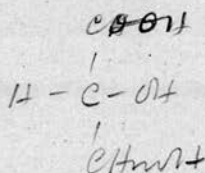 COOH
H - C - OH
CH₂OH